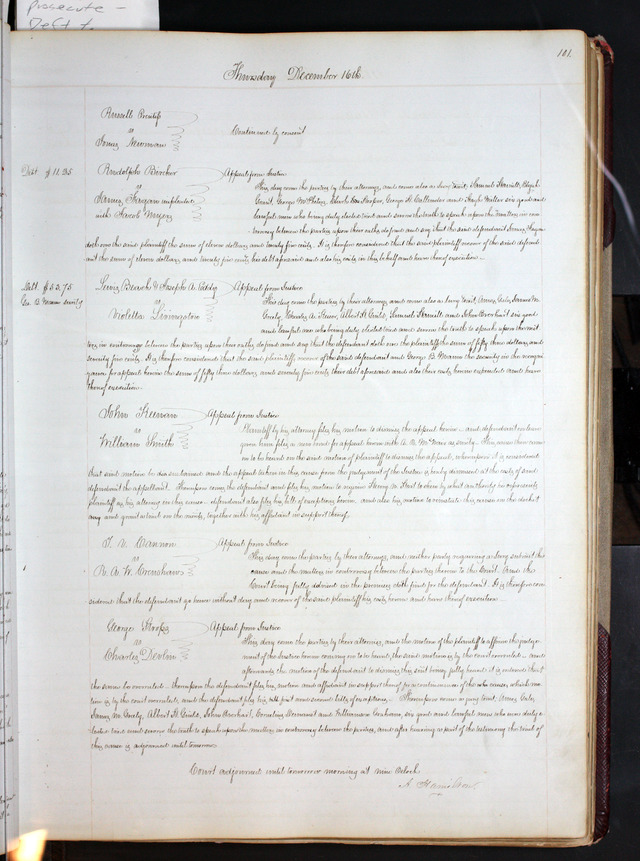 prosecute -
Deft to
101.
Thursday December 16th
Russell Prentiss
vs
James Newman
Continued by consent
Debt $11.25
Randolph Bircher
vs
James Fergan impleaded
with Jacob Myers
Appeal from Justice
This day come the parties by their attorneys, and come also a jury to wit: Samuel
George McPhilny George H. Callender and Hugh Miller six good and
lawful men who being duly elected tried and sworn the truth to speak upon the matters in con-
troversy between the parties upon their oaths, do find and say that the said defendant James Fergan
doth owe the said plaintiff the sum of eleven dollars, and twenty five cents. It is therefore considered that the said plaintiff recover of the said defend-
ant the sum of eleven dollars, and twenty five cents his debt aforesaid and also his costs in this behalf and have thereof execution.
Debt $53.75
Geo. B. security
Lewis Beach & Joseph A. Eddy
vs
Violetta Livingston
Appeal from Justice
This day come the parties by their attorneys, and come also a jury to wit, Amos Gale, James M.
Charles A. Albert H. Guild, Samuel and John six good
and lawful men who being duly elected tried and sworn the truth to speak upon the mat-
ters in controversy between the parties upon their oaths, do find and say that the defendant doth owe the plaintiffs the sum of fifty three dollars, and
seventy five cents. It is therefore considered that the said plaintiffs recover of the said defendant and George B. the security in the recogni-
zance for appeal herein the sum of fifty three dollars, and seventy five cents, their debt aforesaid and also their costs, herein expended and have
thereof execution.
John Keenan
vs
William Smith
Appeal from Justice
Plaintiff by his attorney files his motion to dismiss the appeal herein - and defendant on leave
given him files a new bond for appeal herein with A. R. as security. This cause then came
on to be heard on the said motion of plaintiff to dismiss the appeal, whereupon it is considered
that said motion be also sustained and the appeal taken in this cause from the judgment of the Justice is hereby dismissed at the costs of said
defendant the appellant. Thereupon comes the defendant and files his motion to require Henry N. Hart to shew by what authority he represents
plaintiff as his attorney in this cause - defendant also files his bill of exceptions herein - and also his motion to reinstate this cause on the docket
and grant a trial on the merits, together with his affidavit in support thereof.
T. V. Cannon
vs
R. A. W. Crenshaw
Appeal from Justice
This day come the parties by their attorneys, and neither party requiring a jury submit this
cause and the matters in controversy between the parties herein to the Court. And the
Court being fully advised in the premises doth find for the defendant. It is therefore con-
sidered that the defendant go hence without day and recover of the said plaintiff his costs herein and have thereof execution.
George
vs
Charles Devlin
Appeal from Justice
This day come the parties by their attorneys, and the motion of the plaintiff to affirm the judge-
ment of the Justice herein coming on to be heard, the said motion is by the court overruled - and
afterwards the motion of the defendant to dismiss this suit being fully heard it is ordered that
the same be overruled - thereupon the defendant files his motion and affidavit in support thereof for a continuance of the cause, which mo-
tion is by the court overruled, and the defendant files his first and second bills of exceptions. - Thereupon come a jury to wit, Amos Gale,
James M. Albert H. Guild, John Cornelius and Graham, six good and lawful men who were duly e-
lected tried and sworn the truth to speak upon the matters in controversy between the parties, and after hearing a part of the testimony the trial of
this cause is adjourned until tomorrow.
Court adjourned until tomorrow morning at nine Oclock.
A. Hamilton